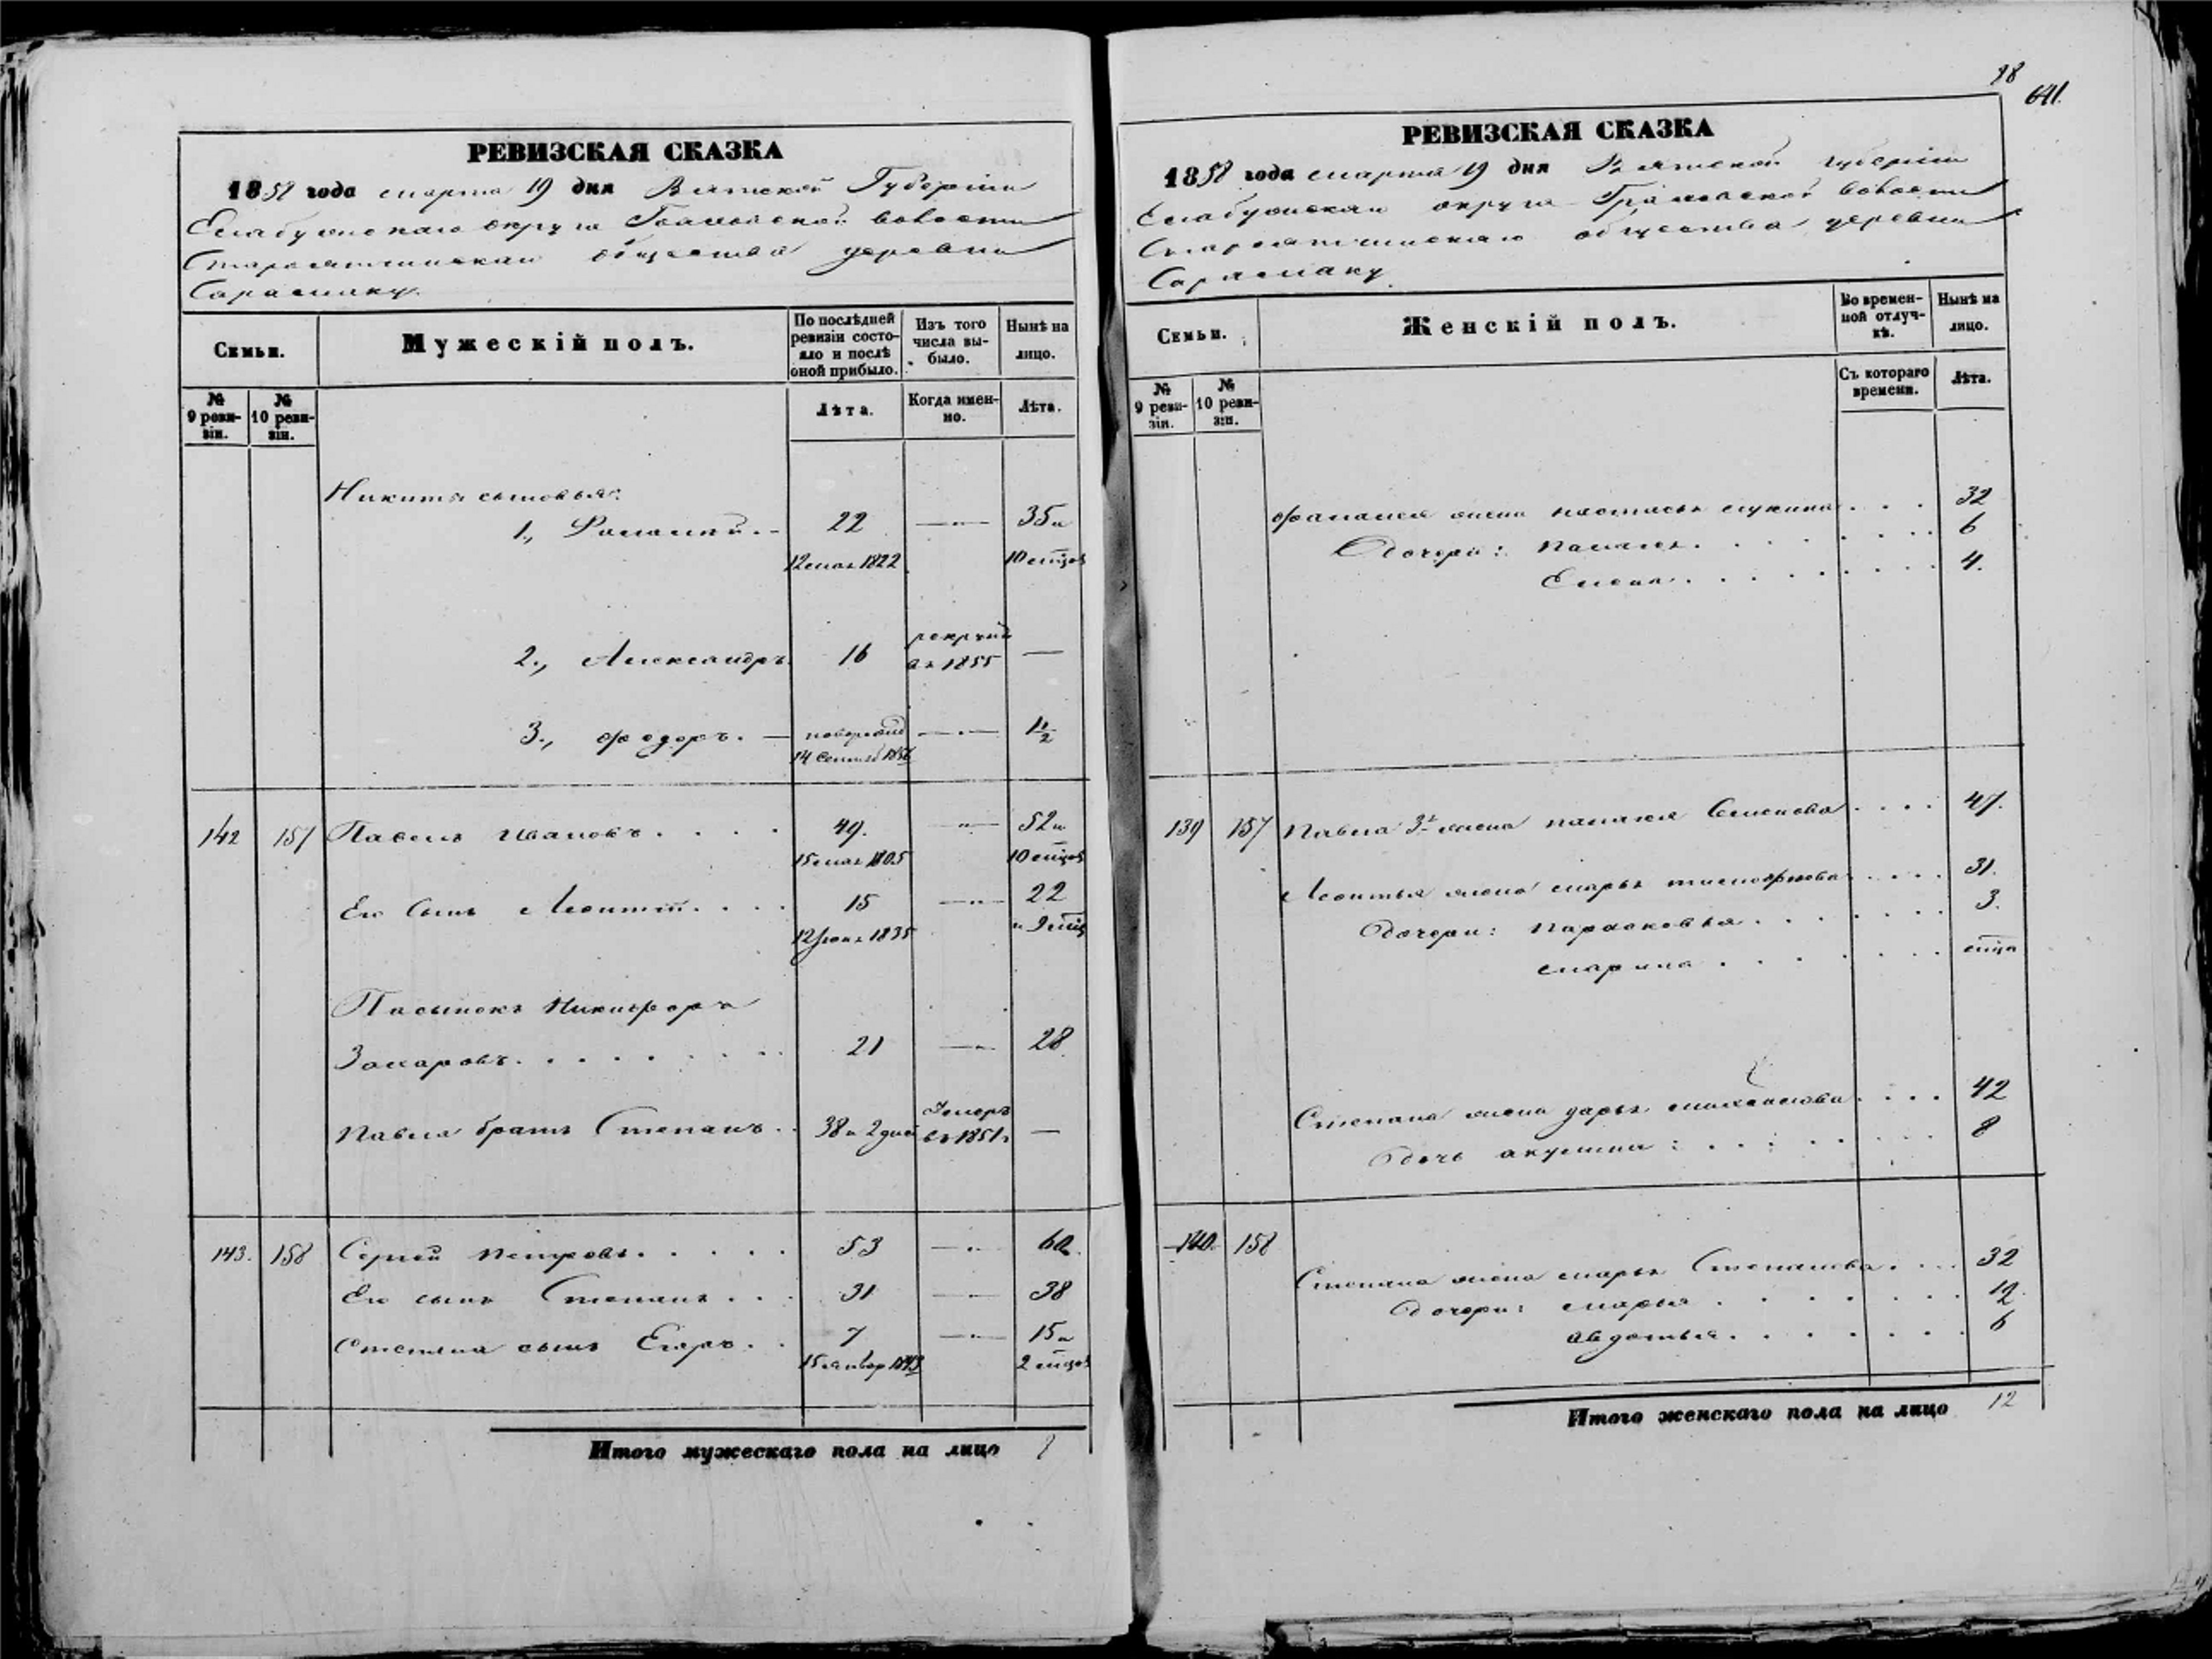 РЕВИЗСКАЯ СКАЗКА
1858 года марта 19 дня Вятской Губернiи
Елабужскаго округа волости
общества деревни
Сарамаку.
Семьи.
Мужескiй полъ.
По послѣдней ревизiи состояло и послѣ оной прибыло.
Изъ того числа выбыло.
Нынѣ на лицо.
№ 9 ревизiи.
№ 10 ревизiи.
Лѣта.
Когда именно.
Лѣта.
Никиты сыновья:
1., 22 —"— 35 и
12 мая 1822 10 мѣцов
2., Александръ 16 рекрут въ 1855 —
3., Ѳедоръ. — новорожд —"— 1½
14 Сентяб 1856
142 157 Павелъ Ивановъ . . . . 49. —"— 52 и
15 мая 1805 10 мѣцов
Его сынъ Леонтiй . . . . 15 —"— 22
12 Iюня 1835 и 9 мѣц
Пасынокъ Никифоръ
Захаровъ . . . . . . . . 21 —"— 28
Павла братъ Степанъ . . 38 и 2 дней Умеръ въ 1851 г —
143. 158 Сергей Петровъ . . . . . 53 —"— 60.
Его сынъ Степанъ . . . 31 —"— 38
Степана сынъ Егоръ . . 7 —"— 15 и
15 январ 1843 2 мѣцов
Итого мужескаго пола на лицо
18
641.
РЕВИЗСКАЯ СКАЗКА
1858 года марта 19 дня Вятской губернiи
Елабужскаго округа волости
общества деревни
Сарамаку.
Семьи.
Женскiй полъ.
Во временной отлучкѣ.
Нынѣ на лицо.
№ 9 ревизiи.
№ 10 ревизiи.
Съ котораго времени.
Лѣта.
жена Настасья Лукина . . . 32
Дочери: Палагея . . . . . . . . 6
Елена . . . . . . . . . 4.
139 157 Павла 3я жена Палагея Семенова . . . . 47.
Леонтья жена Марья Тимофеева . . . . 31.
Дочери: Парасковья . . . . . . . 3.
Марина . . . . . . . мѣца
Степана жена Дарья Михайлова . . . . 42
Дочь Акулина : . . : . . . . . 8
140. 158
Степана жена Марья Степанова . . . . 32
Дочери: Марья . . . . . . . 12.
Авдотья . . . . . . . 6
Итого женскаго пола на лицо 12